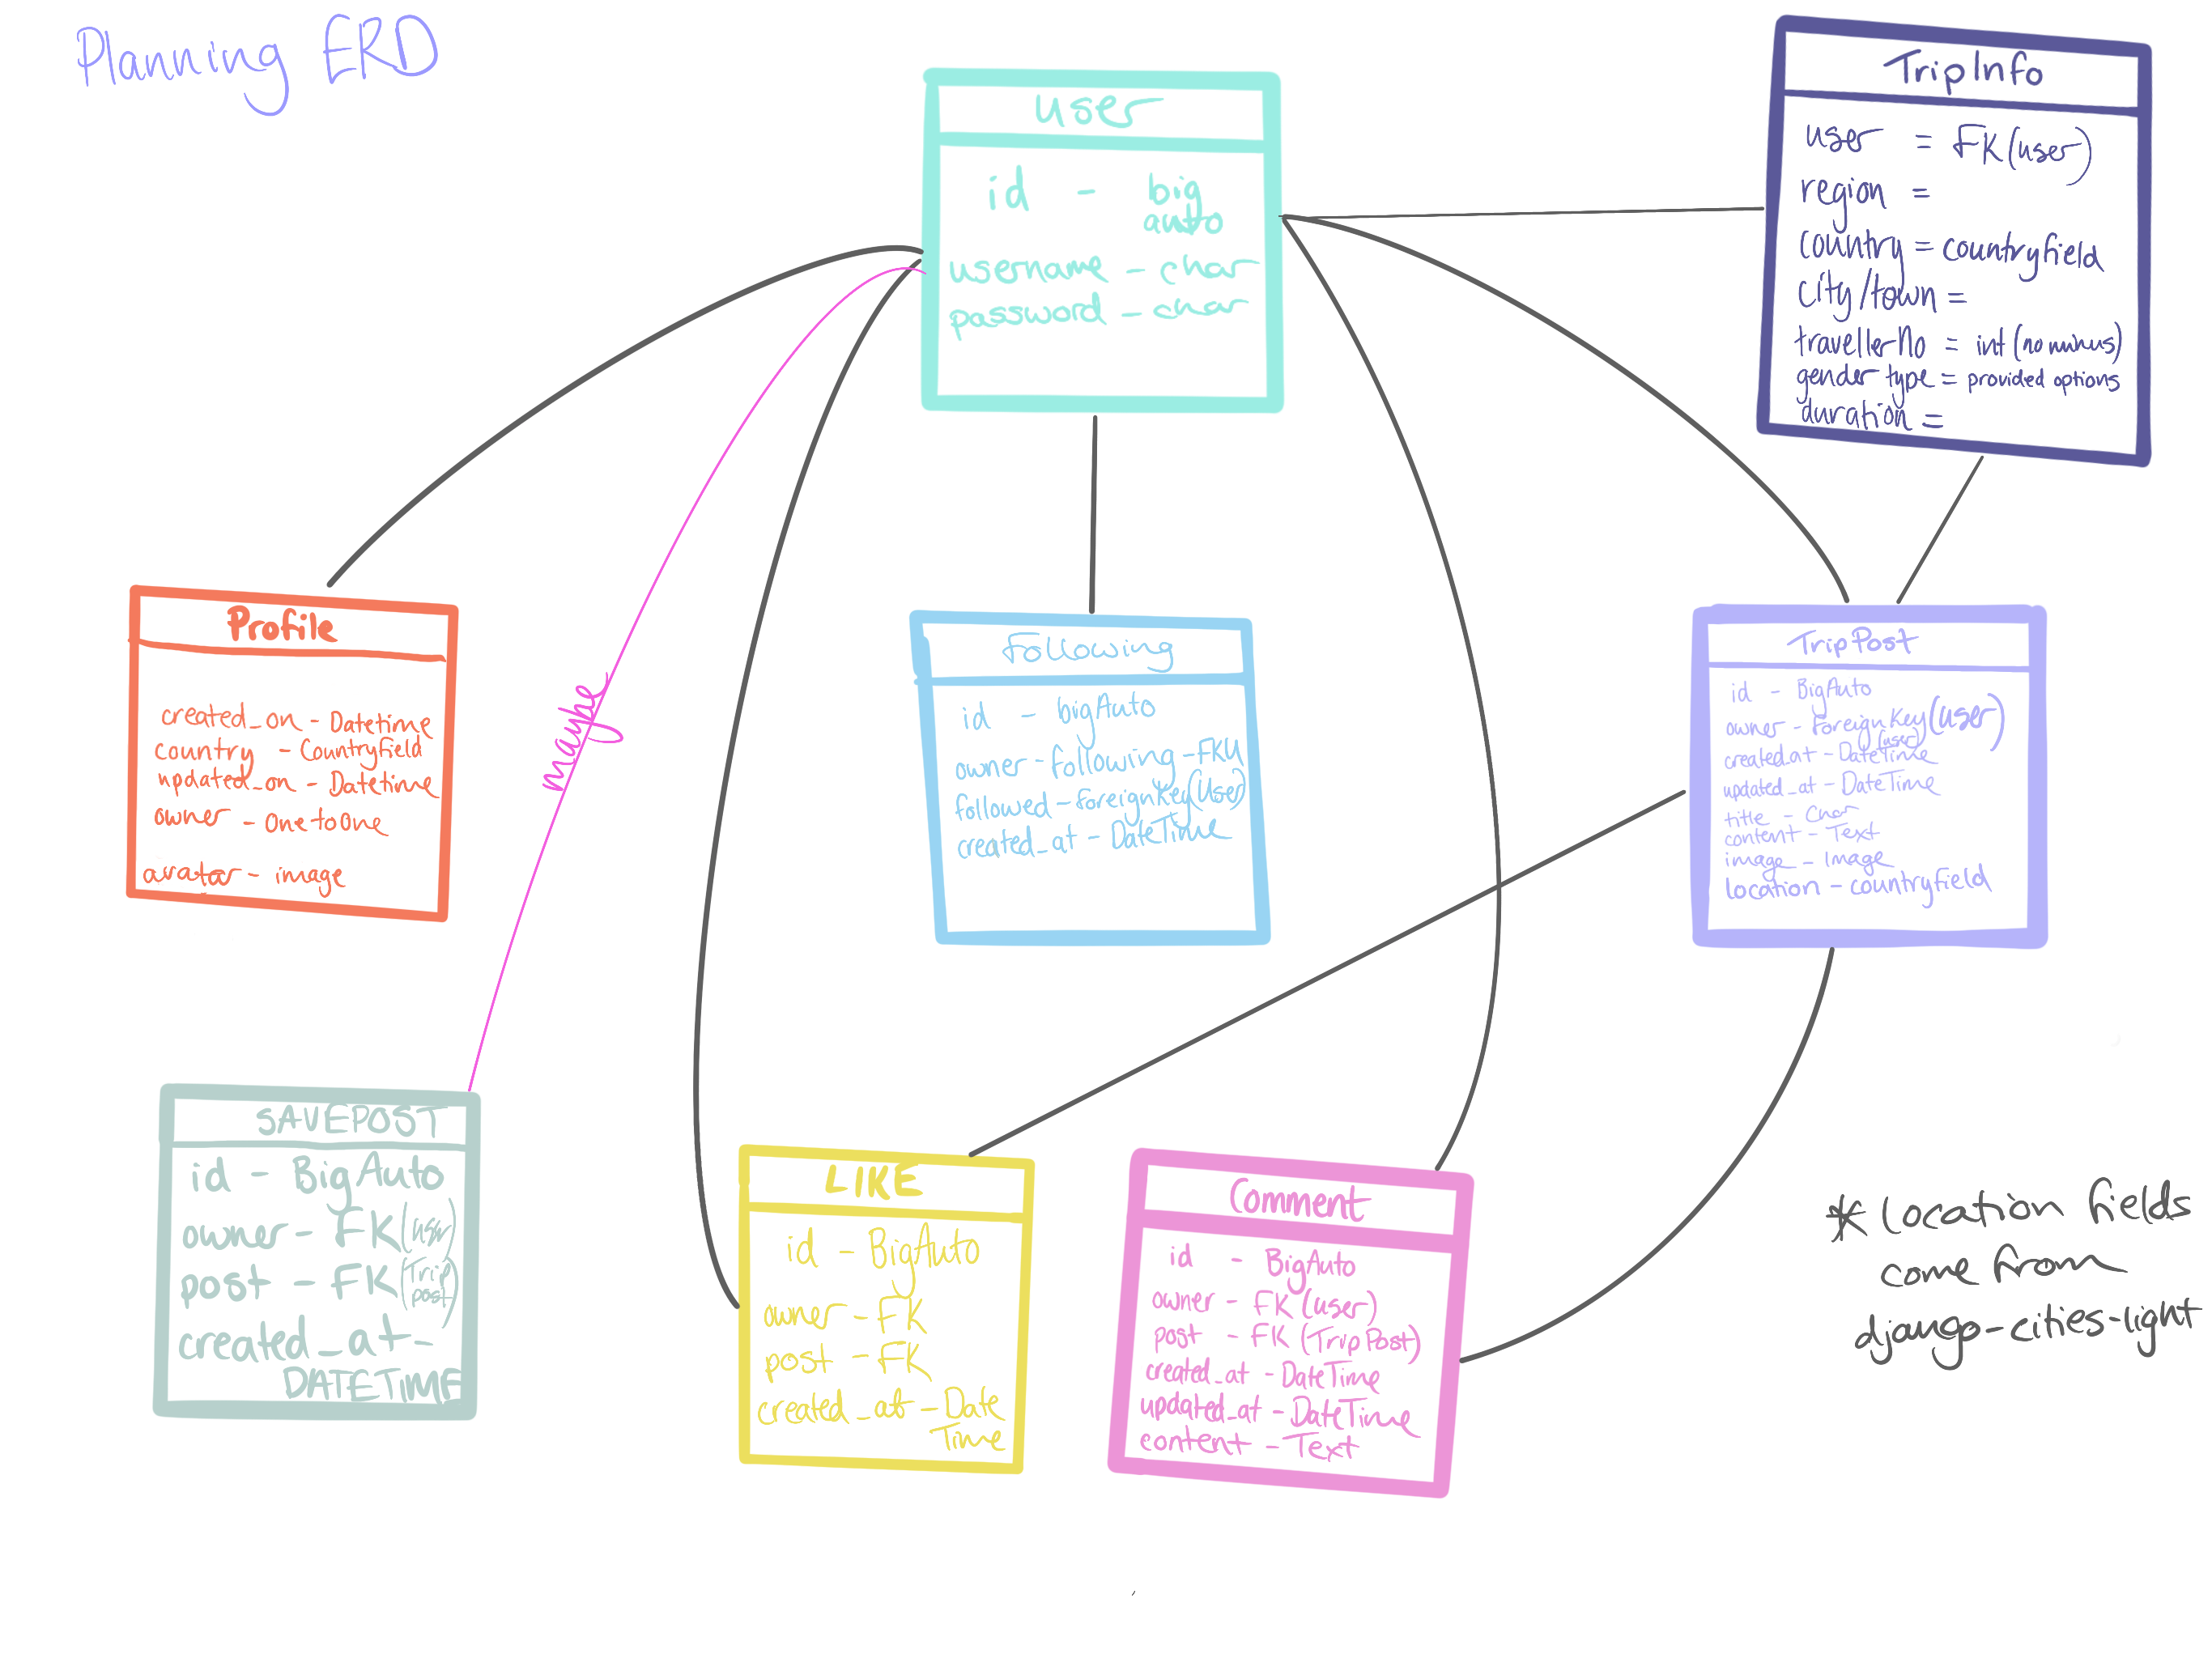 Planning ERD
user
id - big
auto
username - char
password - char
TripInfo
user = FK(user)
region =
country = countryfield
city/town =
travellerNo = int (no minus)
gender type = provided options
duration =
Profile
created_on - Datetime
country - CountryField
updated_on - Datetime
owner - OnetoOne
avatar - image
maybe
Following
id - bigAuto
owner - following - FKU
followed - foreignkey(User)
created_at - DateTime
TripPost
id - BigAuto
owner - ForeignKey (user)
(user)
created_at - DateTime
updated_at - DateTime
title - Char
content - Text
image - Image
location - countryfield
SAVEPOST
id - BigAuto
owner - FK (user)
post - FK (Trip
post)
created_at -
DATETIME
LIKE
id - BigAuto
owner - FK
post - FK
created_at - Date
Time
Comment
id - BigAuto
owner - FK (user)
post - FK (TripPost)
created_at - DateTime
updated_at - DateTime
content - Text
* Location fields
come from
django-cities-light